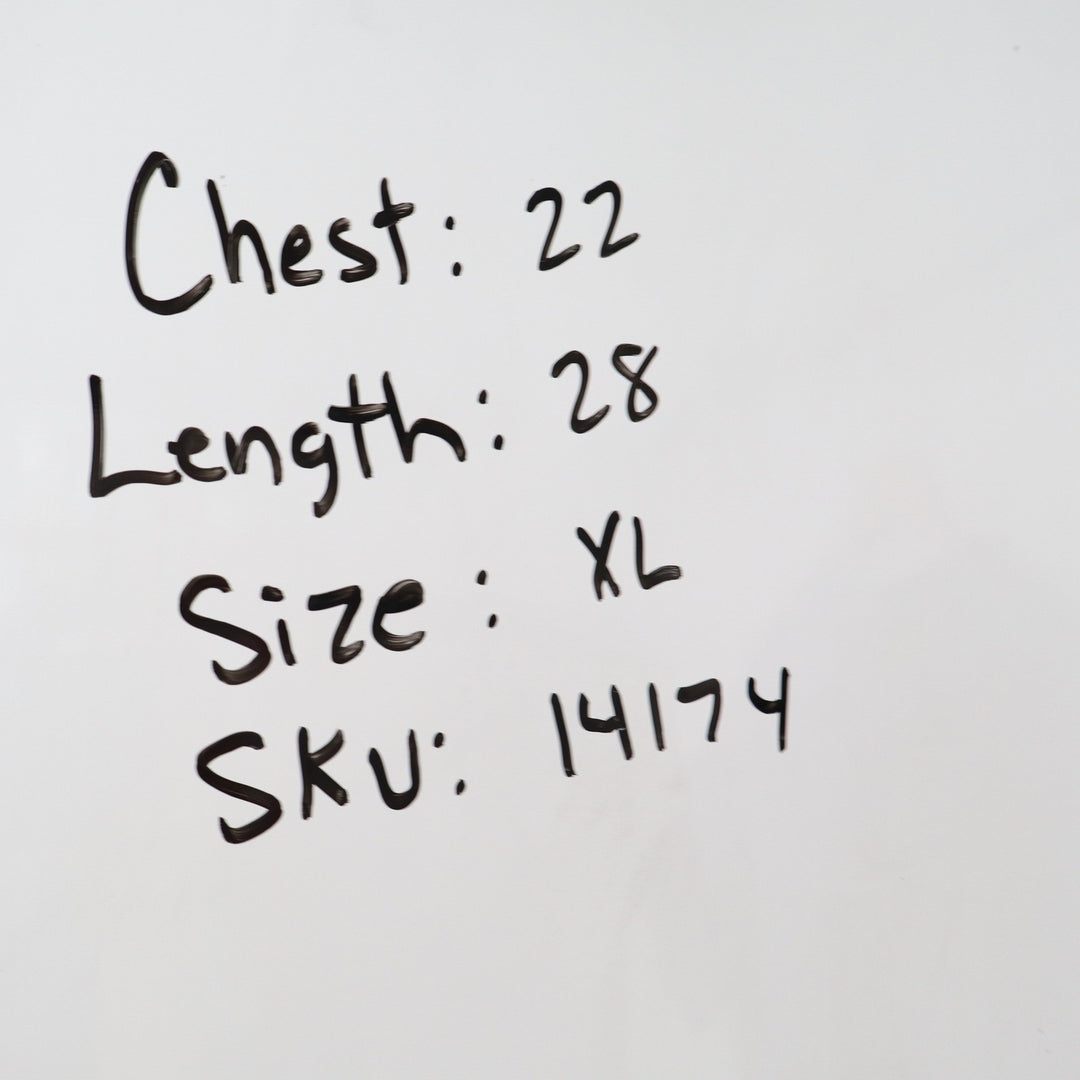 Chest: 22
Length: 28
Size: XL
SKU: 14174